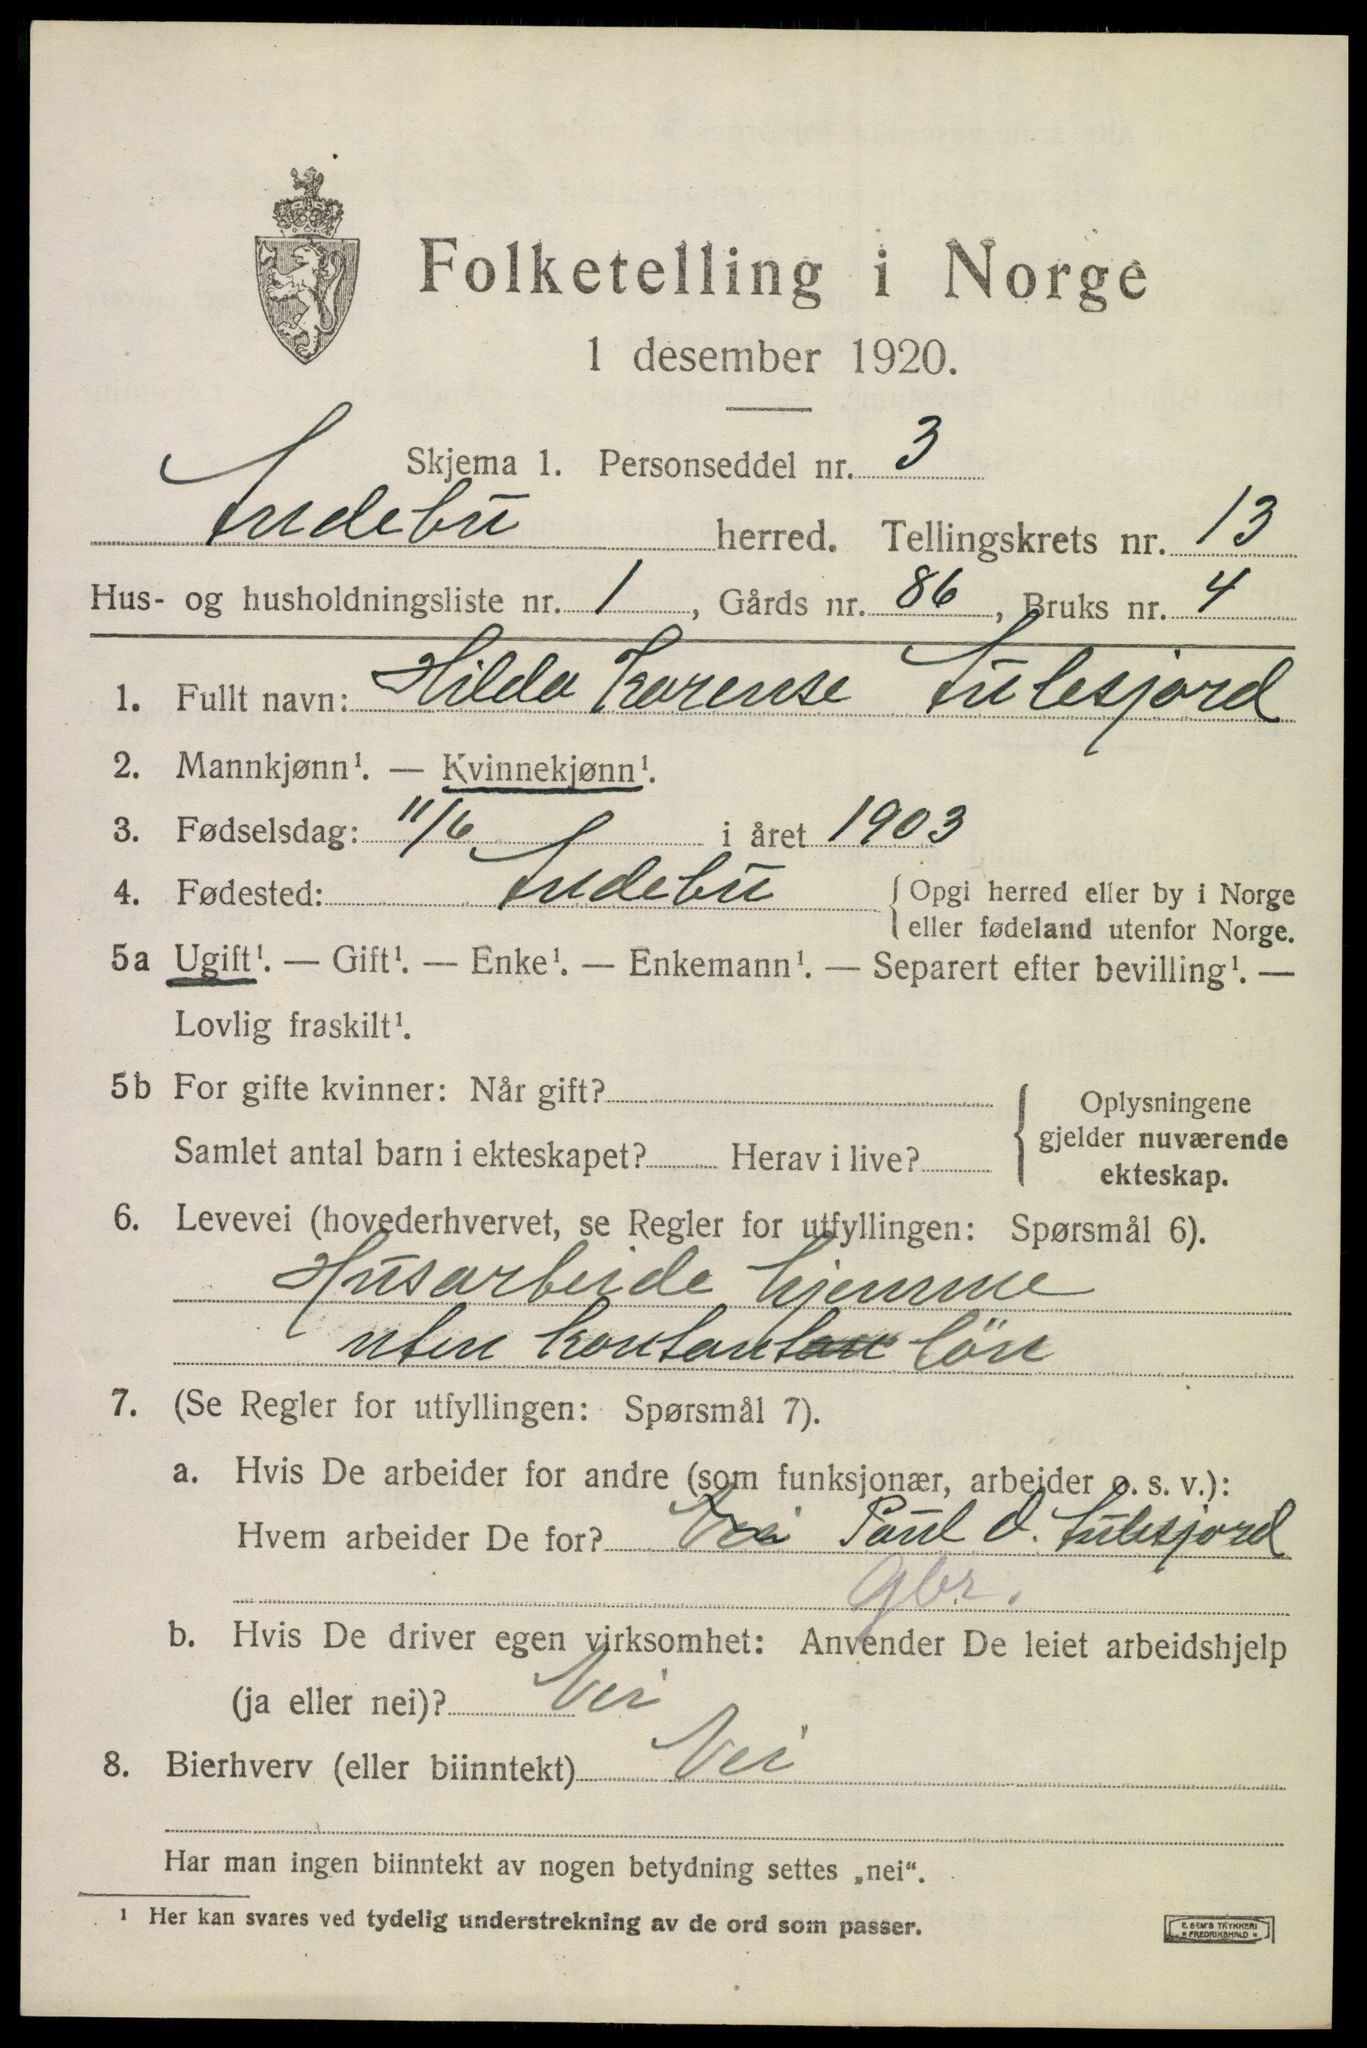 Folketelling i Norge
1 desember 1920.
Skjema 1. Personseddel nr. 3
Andebu herred. Tellingskrets nr. 13
Hus- og husholdningsliste nr. 1, Gårds nr. 86, Bruks nr. 4
1. Fullt navn: Hilda Karense Sulesjord
2. Mannkjønn¹. — Kvinnekjønn¹.
3. Fødselsdag: 11/6 i året 1903
4. Fødested: Andebu { Opgi herred eller by i Norge
eller fødeland utenfor Norge.
5a Ugift¹. — Gift¹. — Enke¹. — Enkemann¹. — Separert efter bevilling¹. —
Lovlig fraskilt¹.
5b For gifte kvinner: Når gift?
Samlet antal barn i ekteskapet? Herav i live?
Oplysningene
gjelder nuværende
ekteskap.
6. Levevei (hovederhvervet, se Regler for utfyllingen: Spørsmål 6).
Husarbeide hjemme
uten kontant lön
7. (Se Regler for utfyllingen: Spørsmål 7).
a. Hvis De arbeider for andre (som funksjonær, arbeider o. s. v.):
Hvem arbeider De for? Nei Paul O. Sulesjord
gbr.
b. Hvis De driver egen virksomhet: Anvender De leiet arbeidshjelp
(ja eller nei)? Nei
8. Bierhverv (eller biinntekt) Nei
Har man ingen biinntekt av nogen betydning settes „nei“.
¹ Her kan svares ved tydelig understrekning av de ord som passer.
E. SEM'S TRYKKERI
FREDRIKSHALD